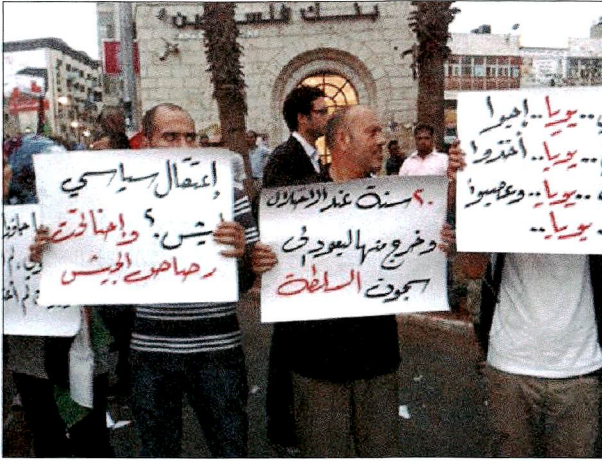 بنك فلسطين
إعتقال سياسي
ليش؟ وإحنا تحت
رصاص الجيش
٢٠ سنة عند الاحتلال
وخرج منها ليعود إلى
سجون السلطة
..يويا.. إجوا
..يويا.. أخذوا
..يويا.. وعصبوا
..يويا..